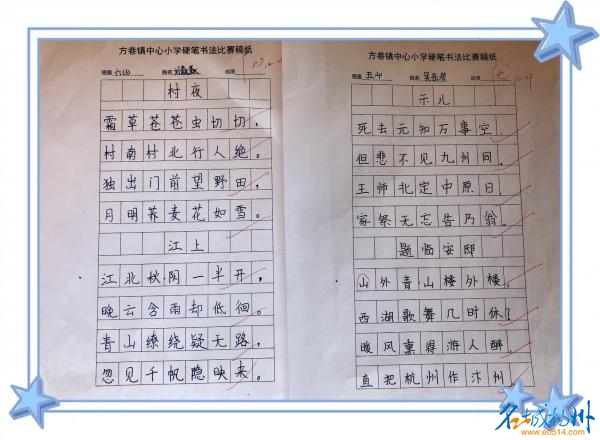 方巷镇中心小学硬笔书法比赛稿纸
班级 六(3) 姓名 成绩
村夜
霜草苍苍虫切切，
村南村北行人绝。
独出门前望野田，
月明荞麦花如雪。
江上
江北秋阴一半开，
晚云含雨却低徊。
青山缭绕疑无路，
忽见千帆隐映来。
方巷镇中心小学硬笔书法比赛稿纸
班级 五 姓名 成绩
示儿
死去元知万事空，
但悲不见九州同。
王师北定中原日，
家祭无忘告乃翁。
题临安邸
山外青山楼外楼，
西湖歌舞几时休？
暖风熏得游人醉，
直把杭州作汴州。
名城扬州
www.e0514.com